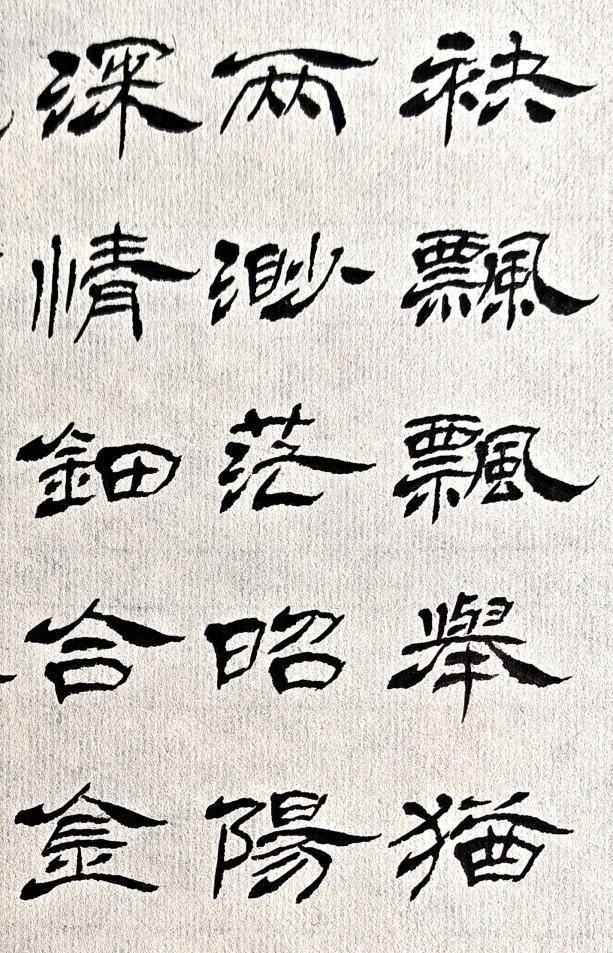 袂飄飄舉猶
两渺茫昭陽
深情鈿合金